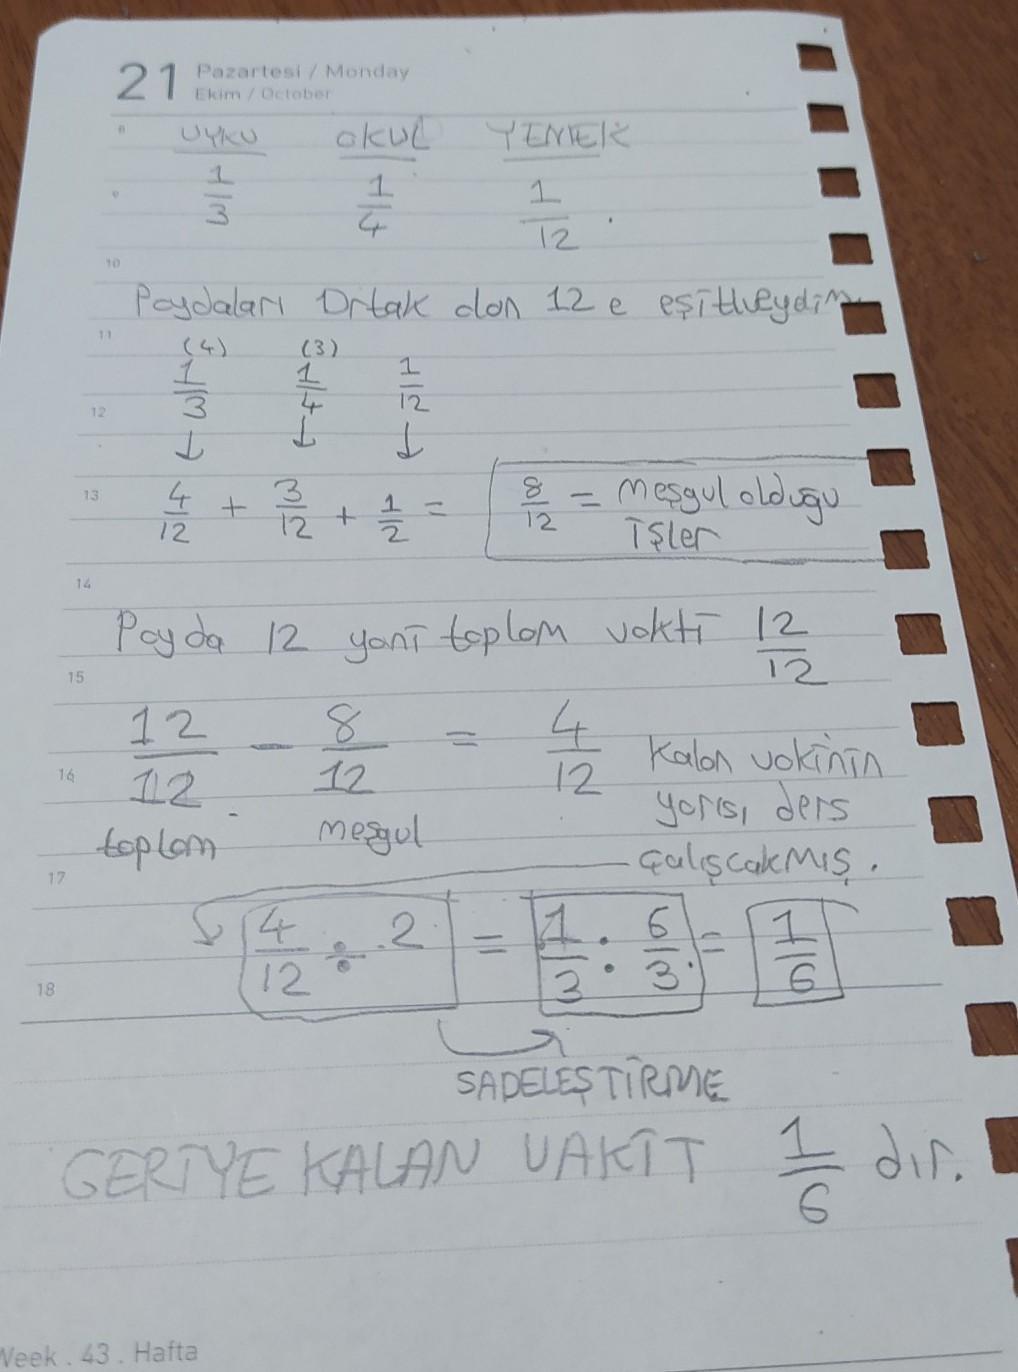 21 Pazartesi / Monday
Ekim / October
8 UYKU OKUL YEMEK
9 1/3 1/4 1/12 .
10
Paydaları Ortak olan 12 e eşitleydim
11 (4) (3)
12 1/3 1/4 1/12
↓ ↓ ↓
13 4/12 + 3/12 + 1/2 = 8/12 = Meşgul olduğu
İşler
14
Payda 12 yani toplam vakti 12/12
15
16 12/12 - 8/12 = 4/12 Kalan vakinin
yarısı ders
toplam meşgul
çalışcakmış.
17
18 4/12 ÷ 2 = 1/3 : 6/3 = 1/6
SADELEŞTİRME
GERİYE KALAN VAKİT 1/6 dır.
Week . 43 . Hafta